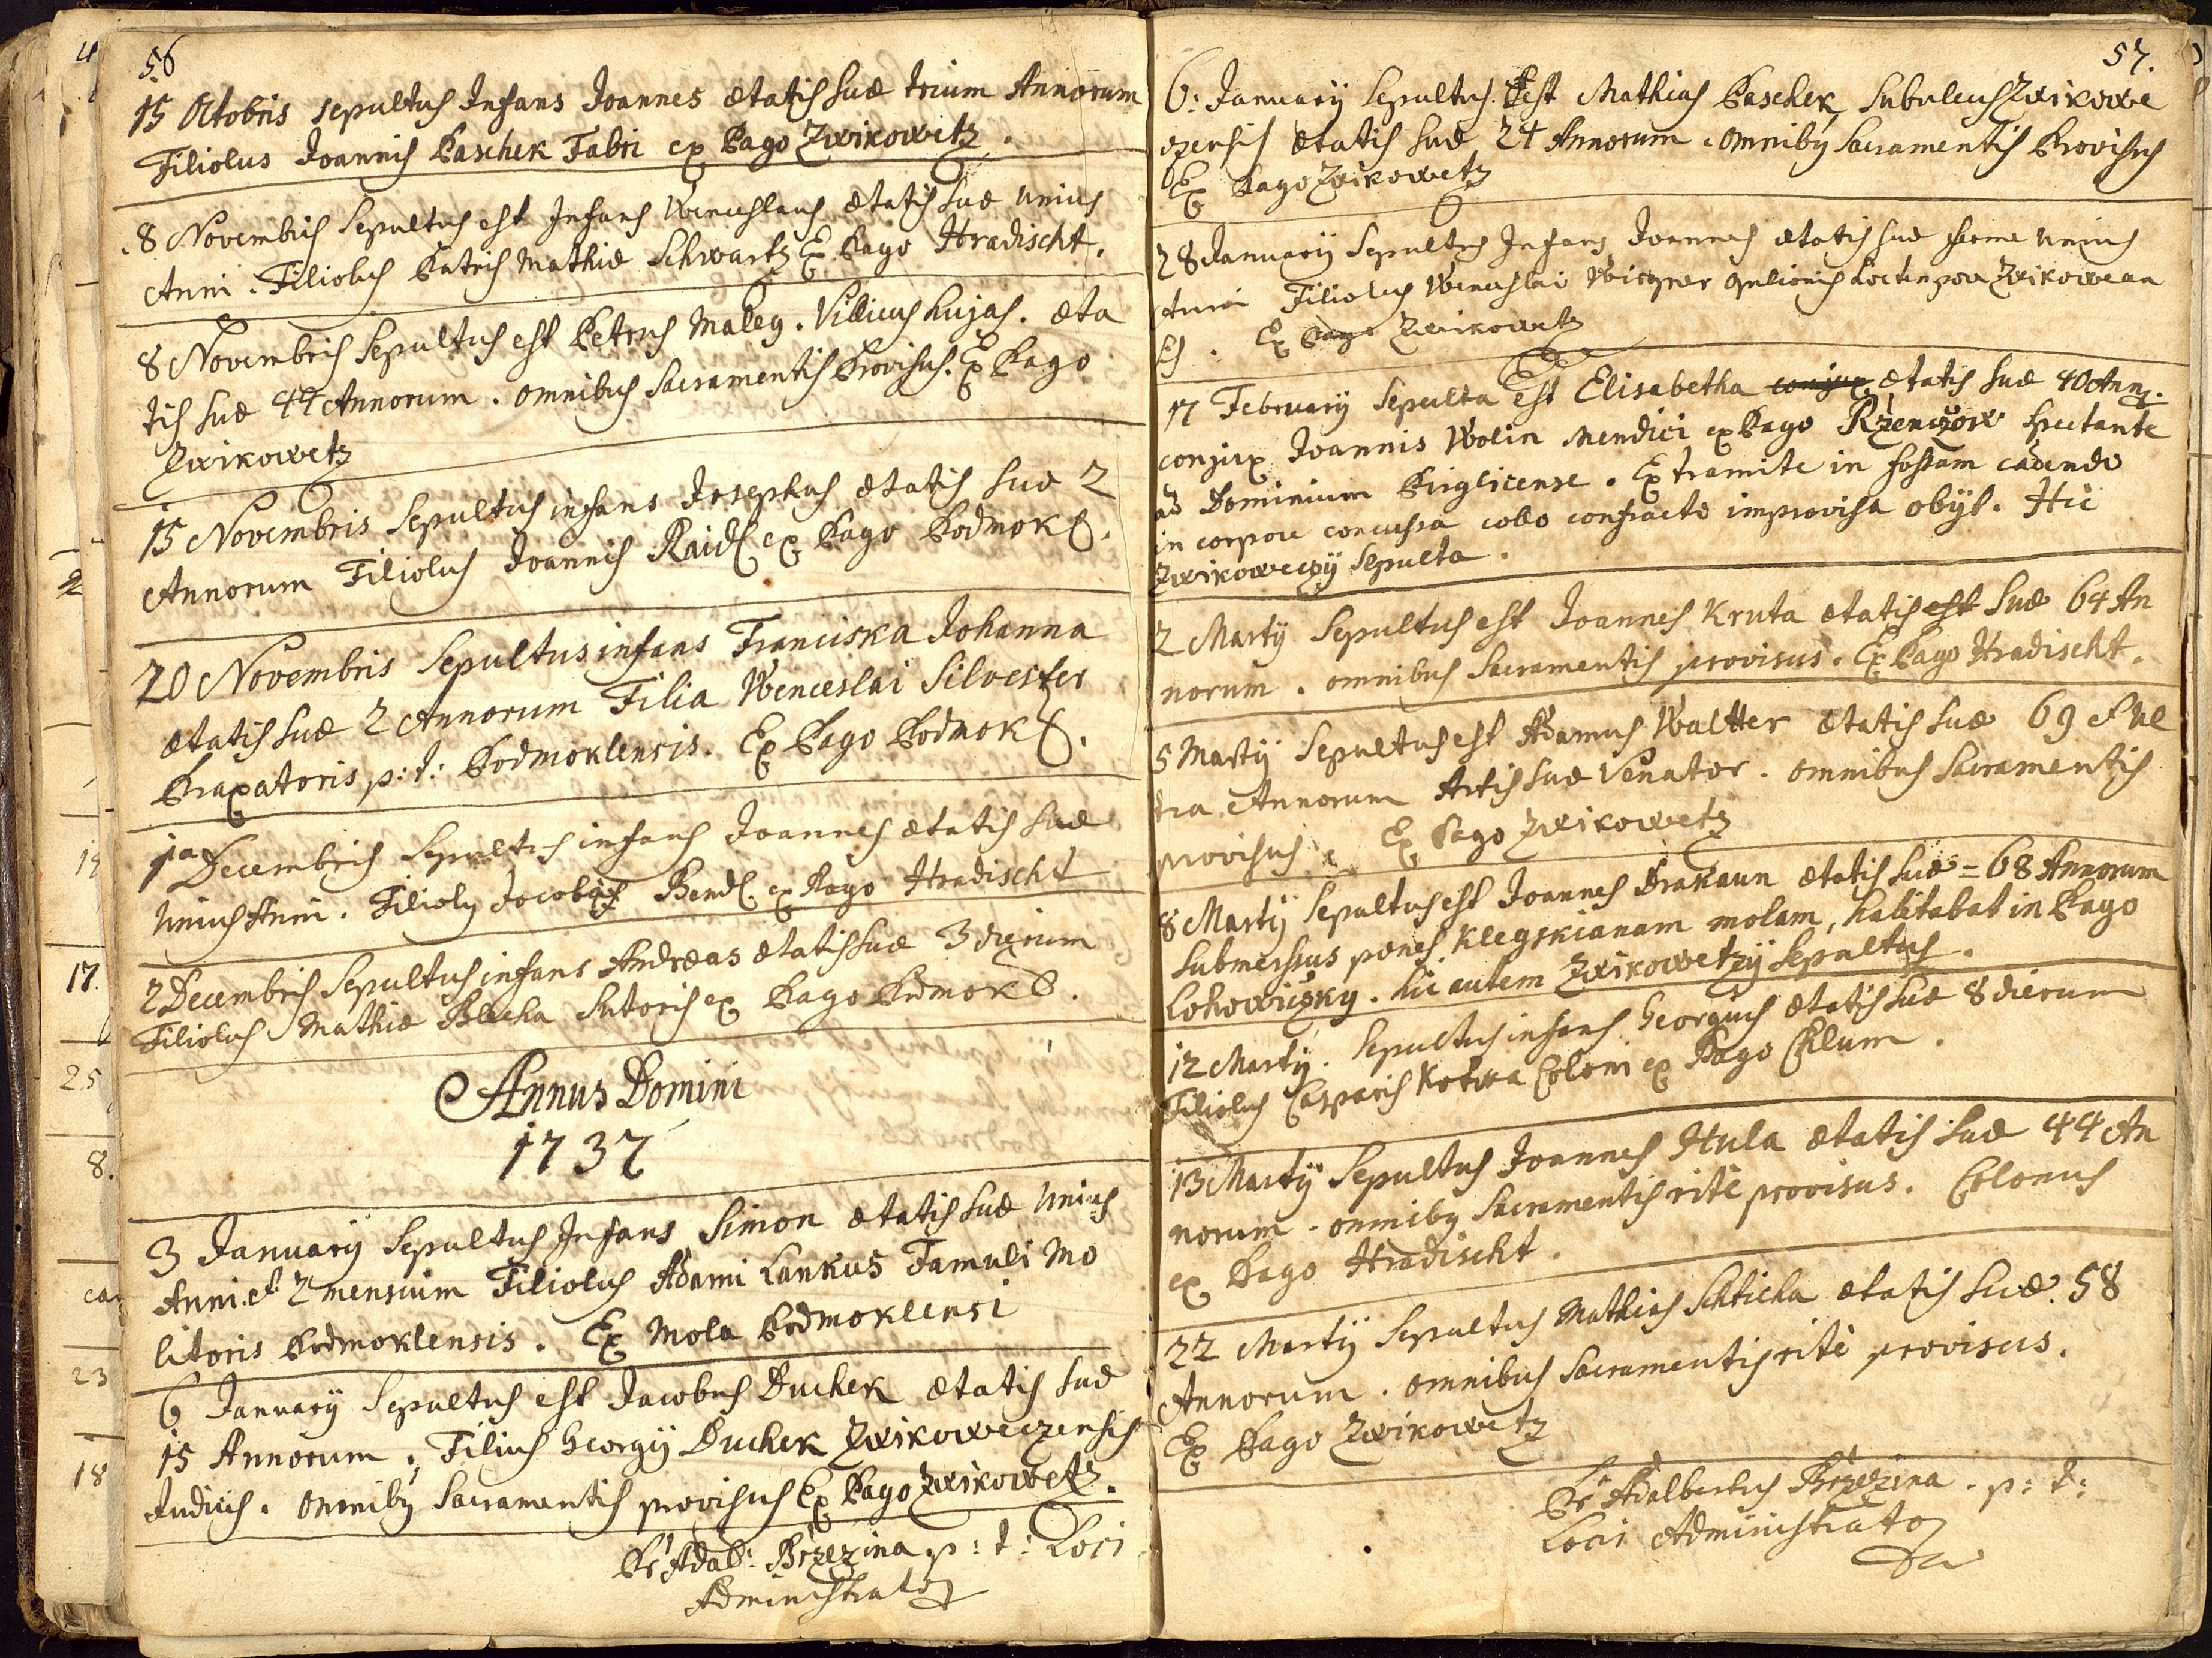 56
15 Octobris sepultus Infans Joannes ætatis suæ trium Annorum
Filiolus Joannis Paschek Fabri ex Pago Zwikowetz.
8 Novembris Sepultus est Infans Wenceslaus ætatis suæ unius
Anni. Filiolus Patris Mathiæ Schwartz Ex Pago Hradischt.
8 Novembris Sepultus est Petrus Maley. Villicus hujas. æta
tis suæ 44 Annorum. omnibus Sacramentis Provisus. Ex Pago
Zwikowetz
15 Novembris Sepultus infans Josephus ætatis suæ 2
Annorum Filiolus Joannis Raidl ex Pago Podmokl.
20 Novembris Sepultus infans Franciska Johanna
ætatis suæ 2 Annorum Filia Wenceslai Silvester
Braxatoris p: t: Podmoklensis. Ex Pago Podmokl.
1a Decembris Sepultus infans Joannes ætatis suæ
unius Anni. Filiolus Jacobi Bendl ex Pago Hradischt
2 Decembris Sepultus infans Andreas ætatis suæ 3 dierum
Filiolus Mathiæ Blecha Sutoris ex Pago Podmokl.
Annus Domini
1737
3 January Sepultus Infans Simon ætatis suæ unius
Anni et 2 mensium Filiolus Adami Lankus Famuli Mo
litoris Podmoklensis. Ex Mola Podmoklensi
6 January Sepultus est Jacobus Duchek ætatis suæ
15 Annorum. Filius Georgij Duchek Zwikoweczensis
Judicis. omnibus Sacramentis provisus Ex Pago Zwikowetz.
Pr Adal: Brzezina p: t: Loci
Administrator
57.
6: January Sepultus est Mathias Paschek Subulcus Zwikowe
czensis ætatis suæ 24 Annorum. omnibus Sacramentis Provisus
Ex Pago Zwikowetz
28 January Sepultus Infans Joannes ætatis suæ ferme unius
Anni Filiolus Wenceslai Opilionis Zwikowecen
Ex Pago Zwikowetz
17 February Sepulta est Elisabetha conjux ætatis suæ 40 Ann.
conjux Joannis Wolin Mendici ex Pago Rzenczow spectante
ad Dominium Pirglicense. Ex tramite in fossam cadendo
in corpore concussa collo confracto improvisa obijt. Hic
Zwikowecij Sepulta.
2 Martij Sepultus est Joannes Kruta ætatis est suæ 64 An
norum. omnibus Sacramentis provisus. Ex Pago Hradischt.
5 Martij Sepultus est Adamus Waltter ætatis suæ 69 et ul
tra Annorum Artis suæ Venator. omnibus Sacramentis
provisus. Ex Pago Zwikowetz
8 Martij Sepultus est Joannes Drakaun ætatis suæ = 68 Annorum
submersus penes Klegskianam molam, habitabat in Pago
Lohowiczky. hic autem Zwikowetzij Sepultus.
12 Martij. Sepultus infans Georgius ætatis suæ 8 dierum
Filiolus Casparis Kotwa Coloni ex Pago Chlum.
13 Martij Sepultus Joannes Hula ætatis suæ 44 An
norum. omnibus Sacramentis ritè provisus. Colonus
ex Pago Hradischt.
22 Martij Sepultus Mathias Schticha ætatis suæ. 58
Annorum. omnibus Sacramentis ritè provisus.
Ex Pago Zwikowetz
Pr Adalbertus Brzezina. p: t:
Loci Administrator